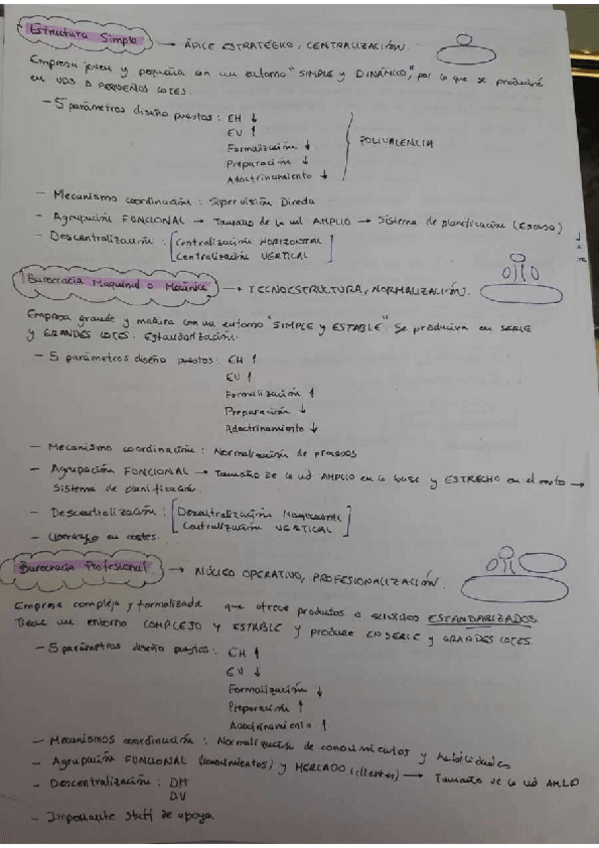 Estructura Simple → ÁPICE ESTRATÉGICO, CENTRALIZACIÓN.
Empresa joven y pequeña con un entorno "SIMPLE y DINÁMICO", por lo que se producirá
en UDS O PEQUEÑOS LOTES.
- 5 parámetros diseño puestos: EH ↓
EV ↑
Formalización ↓
Preparación ↓
Adoctrinamiento ↓
POLIVALENCIA
- Mecanismo coordinación: Supervisión Directa
- Agrupación FUNCIONAL → Tamaño de la ud AMPLIO → Sistema de planificación (Escaso)
- Descentralización: [Centralización HORIZONTAL
Centralización VERTICAL]
Burocracia Maquinal o Mecánica → TECNOESTRUCTURA, NORMALIZACIÓN.
Empresa grande y madura con un entorno "SIMPLE y ESTABLE". Se producirá en SERIE
y GRANDES LOTES. Estandarización.
- 5 parámetros diseño puestos: EH ↑
EV ↑
Formalización ↑
Preparación ↓
Adoctrinamiento ↓
- Mecanismo coordinación: Normalización de procesos
- Agrupación FUNCIONAL → Tamaño de la ud AMPLIO en la base y ESTRECHO en el resto →
Sistema de planificación.
- Descentralización: [Descentralización
Centralización VERTICAL]
- Liderazgo en costes.
Burocracia Profesional → NÚCLEO OPERATIVO, PROFESIONALIZACIÓN.
Empresa compleja y formalizada que ofrece productos o servicios ESTANDARIZADOS.
Tiene un entorno COMPLEJO y ESTABLE y produce EN SERIE y GRANDES LOTES.
- 5 parámetros diseño puestos: EH ↑
EV ↓
Formalización ↓
Preparación ↑
Adoctrinamiento ↑
- Mecanismos coordinación: Normalización de conocimientos y habilidades
- Agrupación FUNCIONAL (conocimientos) y MERCADO (clientes) → Tamaño de la ud
- Descentralización: DH
DV
- Importante staff de apoyo.